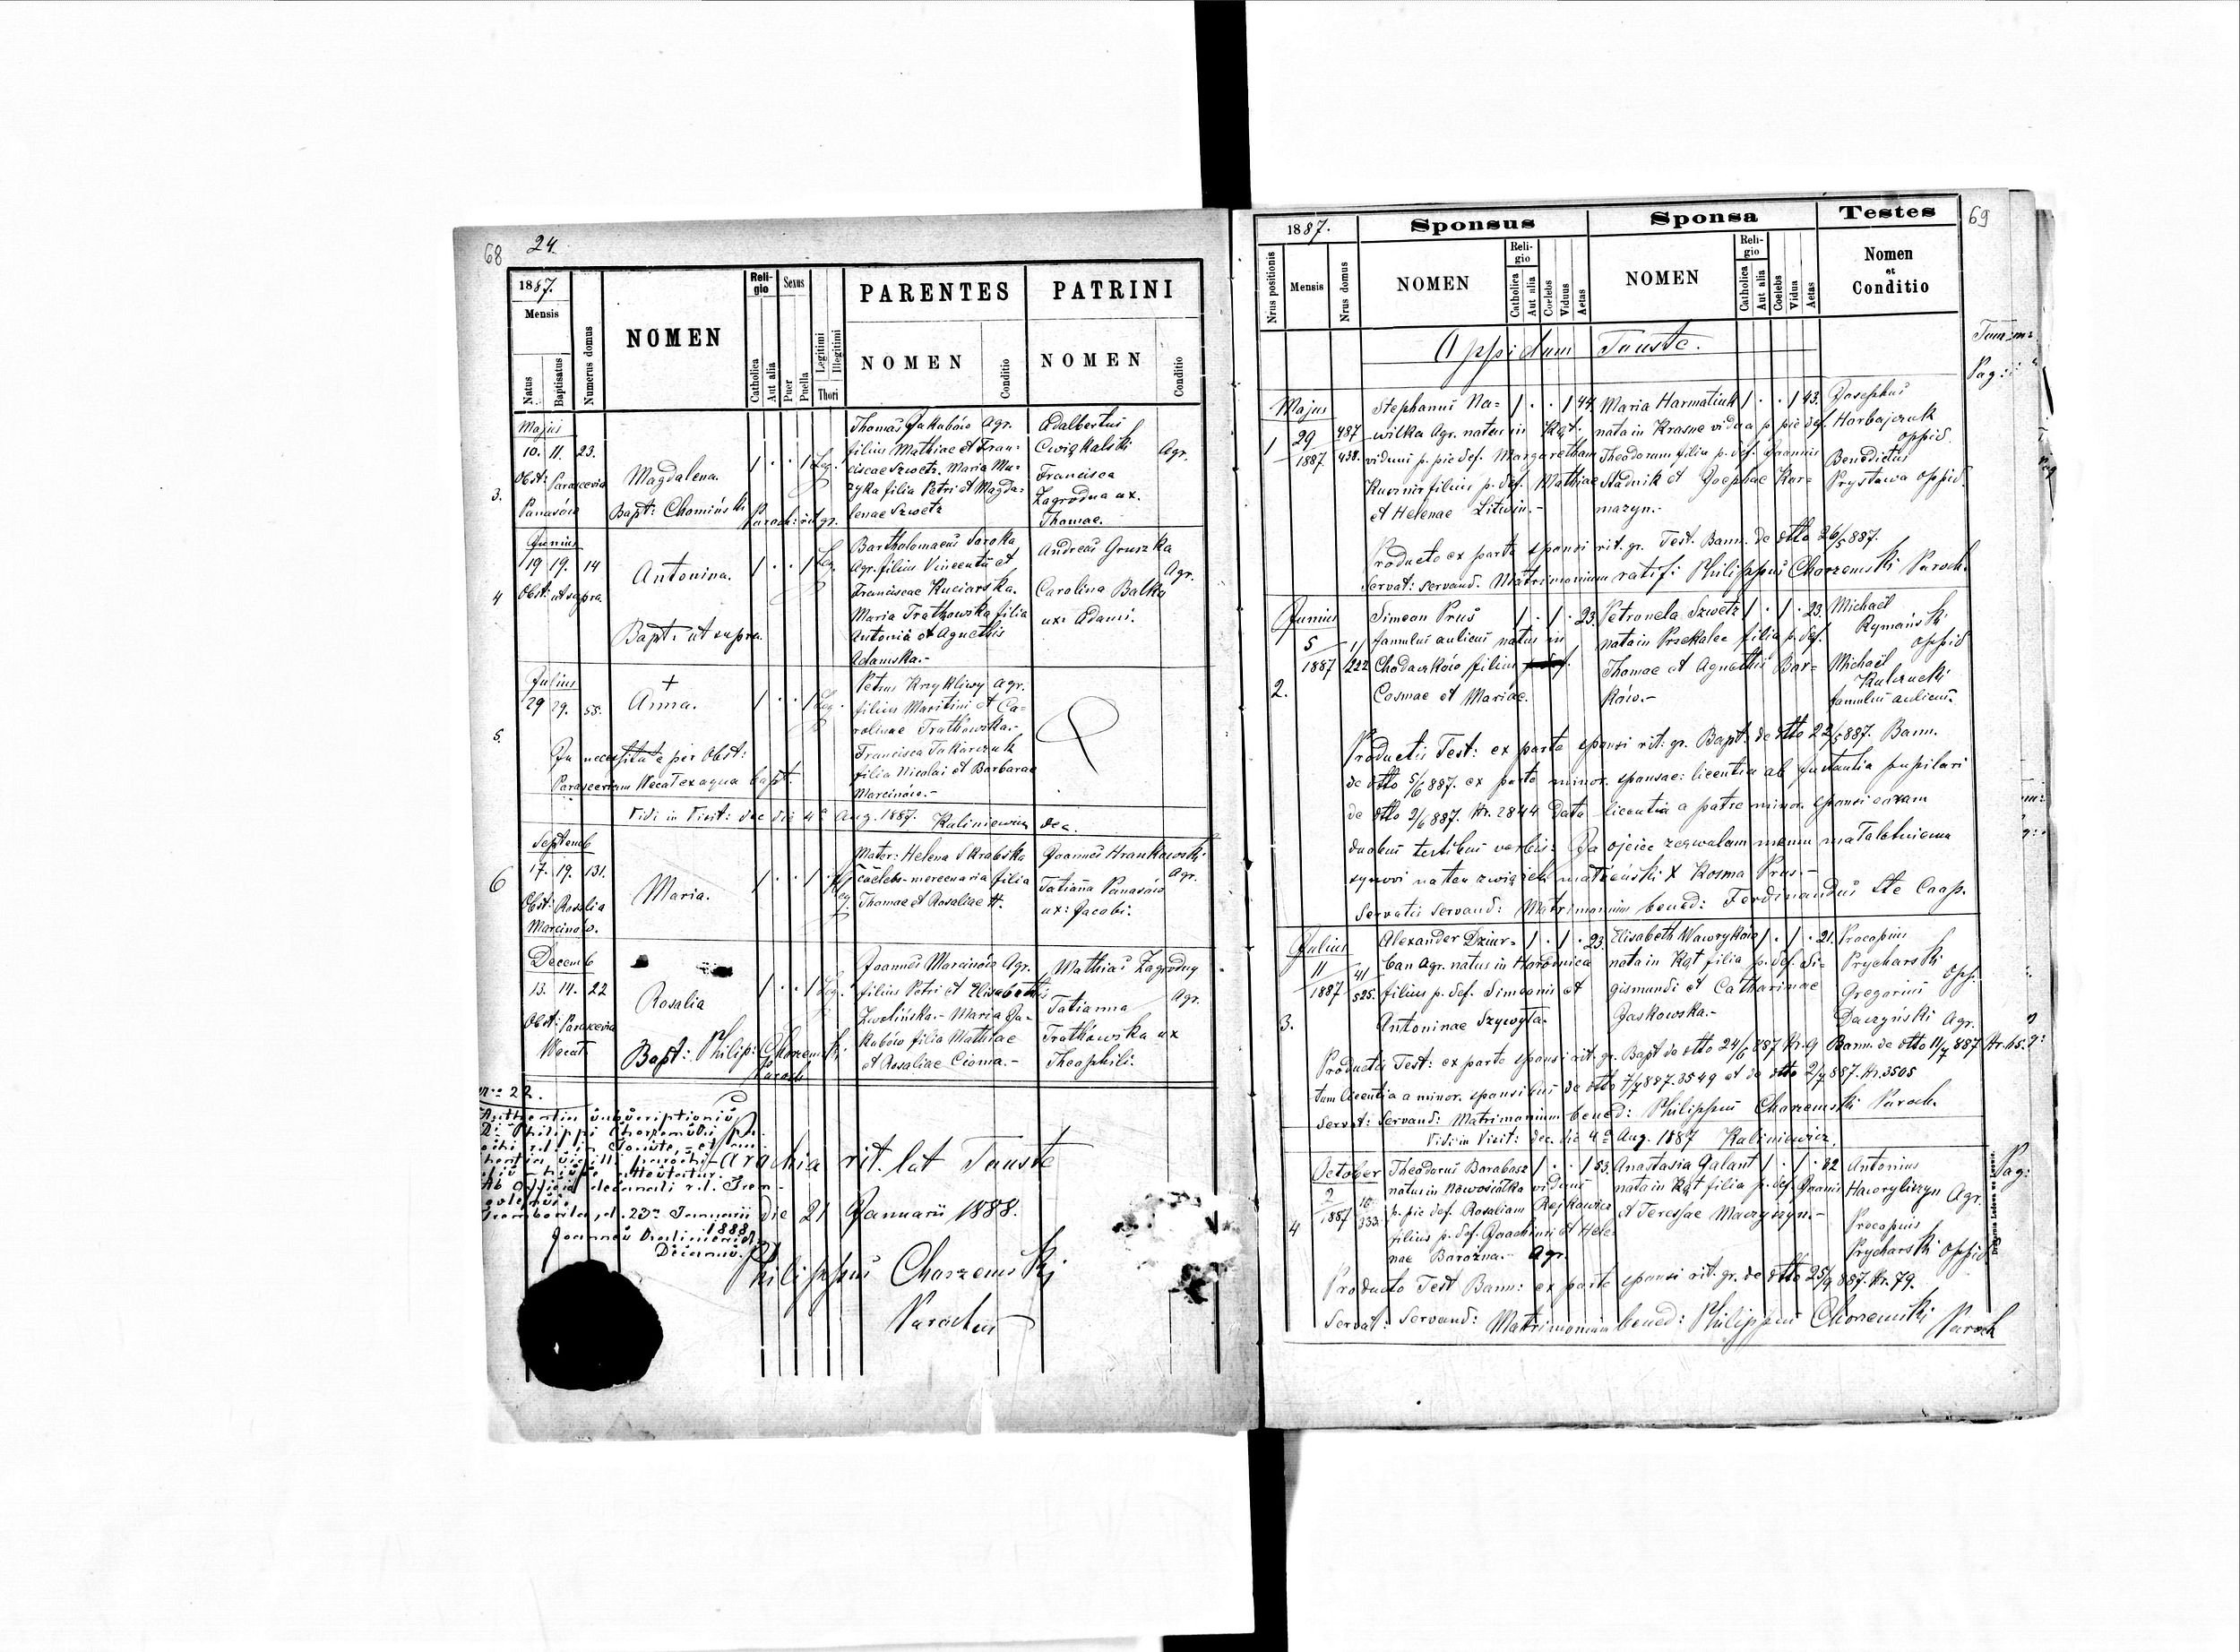 68 24.
1887.
Mensis
Natus
Baptisatus
Numerus domus
NOMEN
Reli-
gio
Catholica
Aut alia
Sexus
Puer
Puella
Legitimi
Illegitimi
Thori
PARENTES
NOMEN
Conditio
PATRINI
NOMEN
Conditio
3.
Majus
10. 11. 23.
Obst: Parascevia
Panasów
Magdalena.
Bapt: Chomiński
Paroch: rit. gr.
1 . . 1 Leg.
Thomas Jakubów Agr.
filius Mathiae et Fran-
ciscae Szwetz. Maria Mu-
zyka filia Petri et Magda-
lenae Szwetz
Adalbertus
Cwiąkalski
Agr.
Francisca
Zagrodna ux.
Thomae.
4
Junius
19 19. 14
Obst: ut supra
Antonina.
Bapt: ut supra.
1 . . 1 Leg.
Bartholomaeus Saroka
Agr. filius Vincentii et
Franciscae Kuciarska.
Maria Tratkowska filia
Antonii et Agnethis
Adamska.-
Andreas Gruszka
Agr.
Carolina Balka
ux: Adami.
5.
Julius
29 29. 55.
+
Anna.
1 . . 1 Leg.
In necessitate per Obst:
Parasceviam Wecal ex aqua bapt.
Petrus Krzykliwy Agr.
filius Martini et Ca-
rolinae Tratkowska.-
Francisca Tokarczuk
filia Nicolai et Barbarae
Marcinów.-
Vidi in Visit: dec die 4a Aug. 1887. Kaliniewicz dec.
6
Septemb
17. 19. 131.
Obst: Rosalia
Marcinów.
Maria.
Mater: Helena Skrabska
caelebs-mercenaria filia
Thomae et Rosaliae H.
Joannes Hrankowski
Agr.
Tatiana Panasów
ux: Jacobi.
Decemb
13. 14. 22
Obst: Parascevia
Wecal
Rosalia
Bapt: Philip: Chorzemski
Paroch
1 . . 1 Leg.
Joannes Marcinów Agr.
filius Petri et Elisabethis
Zwolińska.- Maria Ja-
kubów filia Mathiae
et Rosaliae Cioma.-
Mathias Zagrodny
Agr.
Tatianna
Tratkowska ux
Theophili.
Nro 22.
Parochia rit. lat Tauste
die 21 Januarii 1888.
Philippus Chorzemski
Parochus
Trembowla, d. 23a Januarii
1888.
Joannes Kaliniewicz
Decanus.
69
1887.
Nrus positionis
Mensis
Nrus domus
Sponsus
NOMEN
Reli-
gio
Catholica
Aut alia
Coelebs
Viduus
Aetas
Sponsa
NOMEN
Reli-
gio
Catholica
Aut alia
Coelebs
Vidua
Aetas
Testes
Nomen
et
Conditio
Oppidum Tauste.
1
Majus
29
1887
487
438.
Stephanus Na-
wilka Agr. natus in Kąt.
viduus p. pie def. Margaretham
Kusznir filius p. def. Mathiae
et Helenae Litwin.-
1 . . 1 44.
Maria Harmatiuk
nata in Krasne vidua p pie def.
Theodorum filia p. def. Joannis
Stadnik et Josephae Kar-
mazyn.-
1 . . 1 43.
Josephus
Horbajczuk
oppid.
Benedictus
Prystawa oppid.
Producto ex parte sponsi rit. gr. Test. Bann. de dtto 26/5 887.
Servat: servand. Matrimonium ratif: Philippus Chorzemski Paroch.
2.
Junius
5
1887
11
222
Simeon Prus
famulus aulicus natus in
Chodaczków filius
Cosmae et Mariae.
1 . 1 . 23.
Petronela Szwetz
nata in Przekalec filia p. def.
Thomae et Agnethis Bar-
ków.-
1 . 1 . 23.
Michaël
Rymański
oppid
Michaël
Kulczucki
famulus aulicus.
Productis Test: ex parte sponsi rit: gr. Bapt. de dtto 22/5 887. Bann.
de dtto 5/6 887. ex parte minor. sponsae: licentia ab Instantia pupilari
de dtto 2/6 887. Nr. 2844 Data licentia a patre minor. sponsi coram
duobus testibus verbis: Ja ojciec zezwalam memu małoletniemu
synowi na ten związek małżeński X Kosma Prus.-
Servatis servand: Matrimonium bened: Ferdinandus Ste Coop.
3.
Julius
11
1887
41
525.
Alexander Dziur-
ban Agr. natus in Horodnica
filius p. def. Simeonis et
Antoninae Szywyta.
1 . 1 . 23.
Elisabeth Wawryków
nata in Kąt filia p. def. Si-
gismundi et Catharinae
Jaskowska.-
1 . 1 . 21.
Procopius
Prycharski
Opp.
Gregorius
Daczyński Agr.
Productis Test: ex parte sponsi rit. gr. Bapt de dtto 24/6 887 Nr. 9 Bann. de dtto 11/7 887 Nr. 65.
tum licentia a minor. sponsibus de dtto 7/7 887. 3549 et de dtto 2/7 887. Nr. 3505
Servat: servand: Matrimonium bened: Philippus Chorzemski Paroch.
Vidi in Visit: dec. die 4a Aug. 1887 Kaliniewicz.
4
October
2
1887
10
333.
Theodorus Barabasz
natus in Nowosiółka viduus
p. pie def. Rosaliam Rejkowicz
filius p. def. Joachimi et Hele-
nae Barażna.- Agr.
1 . . 1 53.
Anastasia Galant
nata in Kąt filia p. def. Joannis
et Teressae Maczyszyn.-
1 . 1 . 32
Antonius
Hawryliszyn Agr.
Procopius
Prycharski oppid.
Producto Test Bann: ex parte sponsi rit. gr. de dtto 25/9 887. Nr. 79.
Servat: servand: Matrimonium bened: Philippus Chorzemski Paroch
Pag: